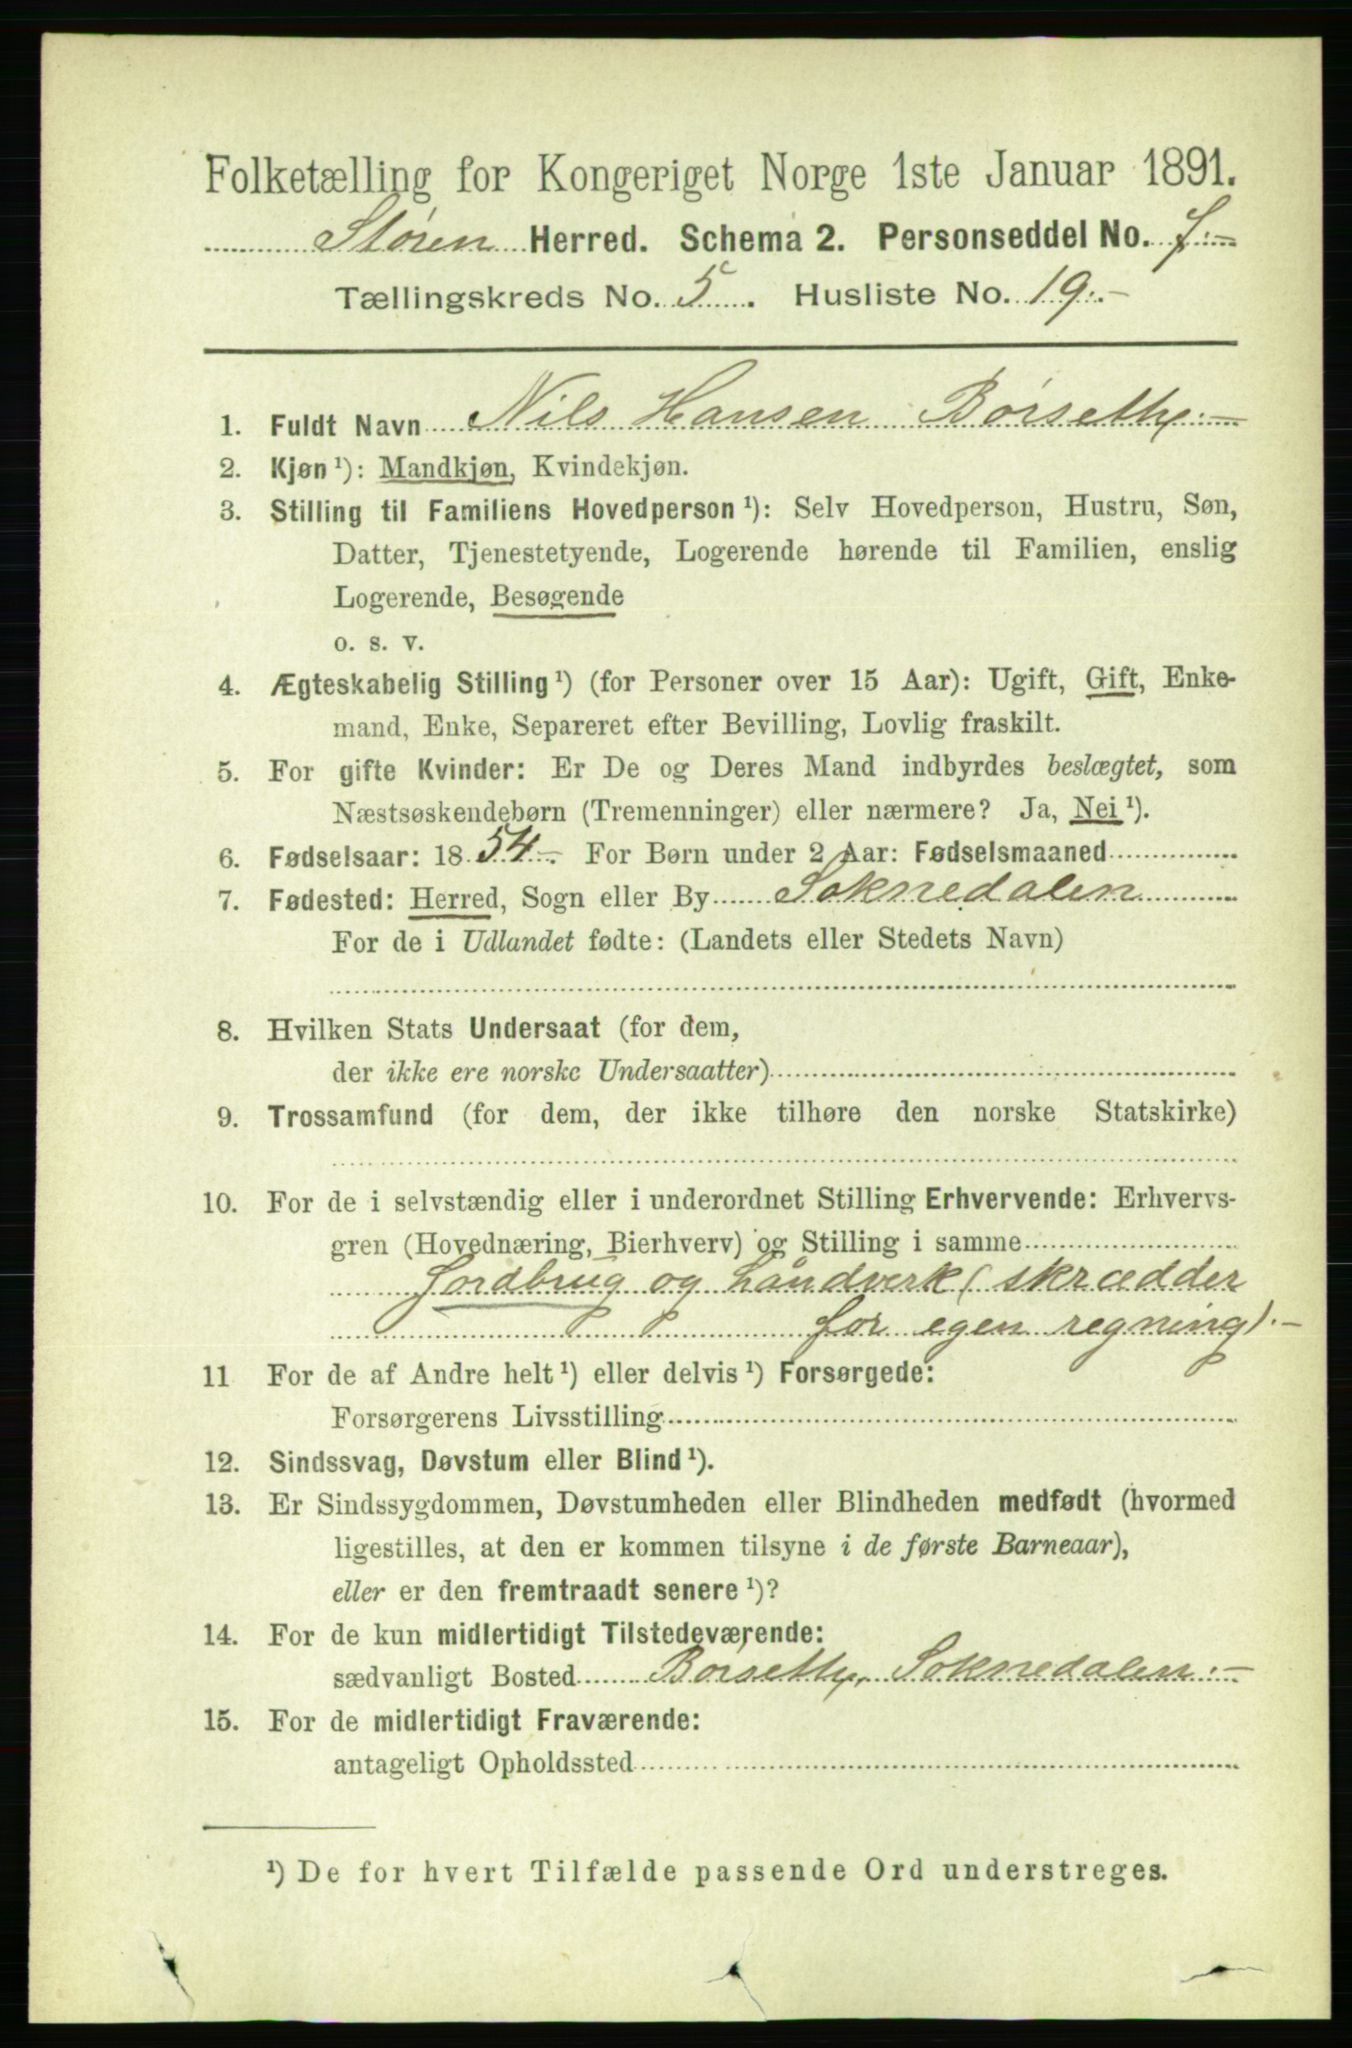 Folketælling for Kongeriget Norge 1ste Januar 1891.
Støren Herred. Schema 2. Personseddel No. 7.
Tællingskreds No. 5. Husliste No. 19.
1. Fuldt Navn Nils Hansen Børseth
2. Kjøn ¹): Mandkjøn, Kvindekjøn.
3. Stilling til Familiens Hovedperson ¹): Selv Hovedperson, Hustru, Søn,
Datter, Tjenestetyende, Logerende hørende til Familien, enslig
Logerende, Besøgende
o. s. v.
4. Ægteskabelig Stilling ¹) (for Personer over 15 Aar): Ugift, Gift, Enke-
mand, Enke, Separeret efter Bevilling, Lovlig fraskilt.
5. For gifte Kvinder: Er De og Deres Mand indbyrdes beslægtet, som
Næstsøskendebørn (Tremenninger) eller nærmere? Ja, Nei ¹).
6. Fødselsaar: 1854. For Børn under 2 Aar: Fødselsmaaned
7. Fødested: Herred, Sogn eller By Soknedalen
For de i Udlandet fødte: (Landets eller Stedets Navn)
8. Hvilken Stats Undersaat (for dem,
der ikke ere norske Undersaatter)
9. Trossamfund (for dem, der ikke tilhøre den norske Statskirke)
10. For de i selvstændig eller i underordnet Stilling Erhvervende: Erhvervs-
gren (Hovednæring, Bierhverv) og Stilling i samme
Jordbrug og håndverk (skrædder
for egen regning).
11 For de af Andre helt ¹) eller delvis ¹) Forsørgede:
Forsørgerens Livsstilling
12. Sindssvag, Døvstum eller Blind ¹).
13. Er Sindssygdommen, Døvstumheden eller Blindheden medfødt (hvormed
ligestilles, at den er kommen tilsyne i de første Barneaar),
eller er den fremtraadt senere ¹)?
14. For de kun midlertidigt Tilstedeværende:
sædvanligt Bosted Børseth, Soknedalen.
15. For de midlertidigt Fraværende:
antageligt Opholdssted
¹) De for hvert Tilfælde passende Ord understreges.